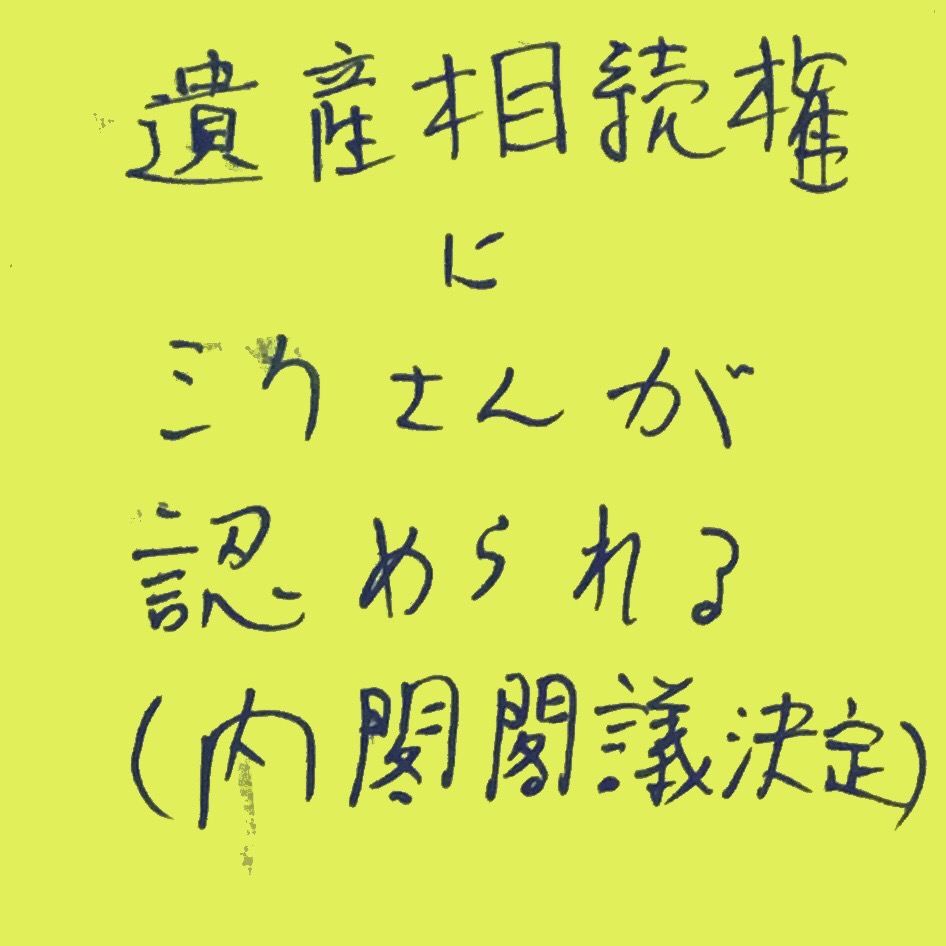 遺産相続権
に
ミカさんが
認められる
(内閣閣議決定)